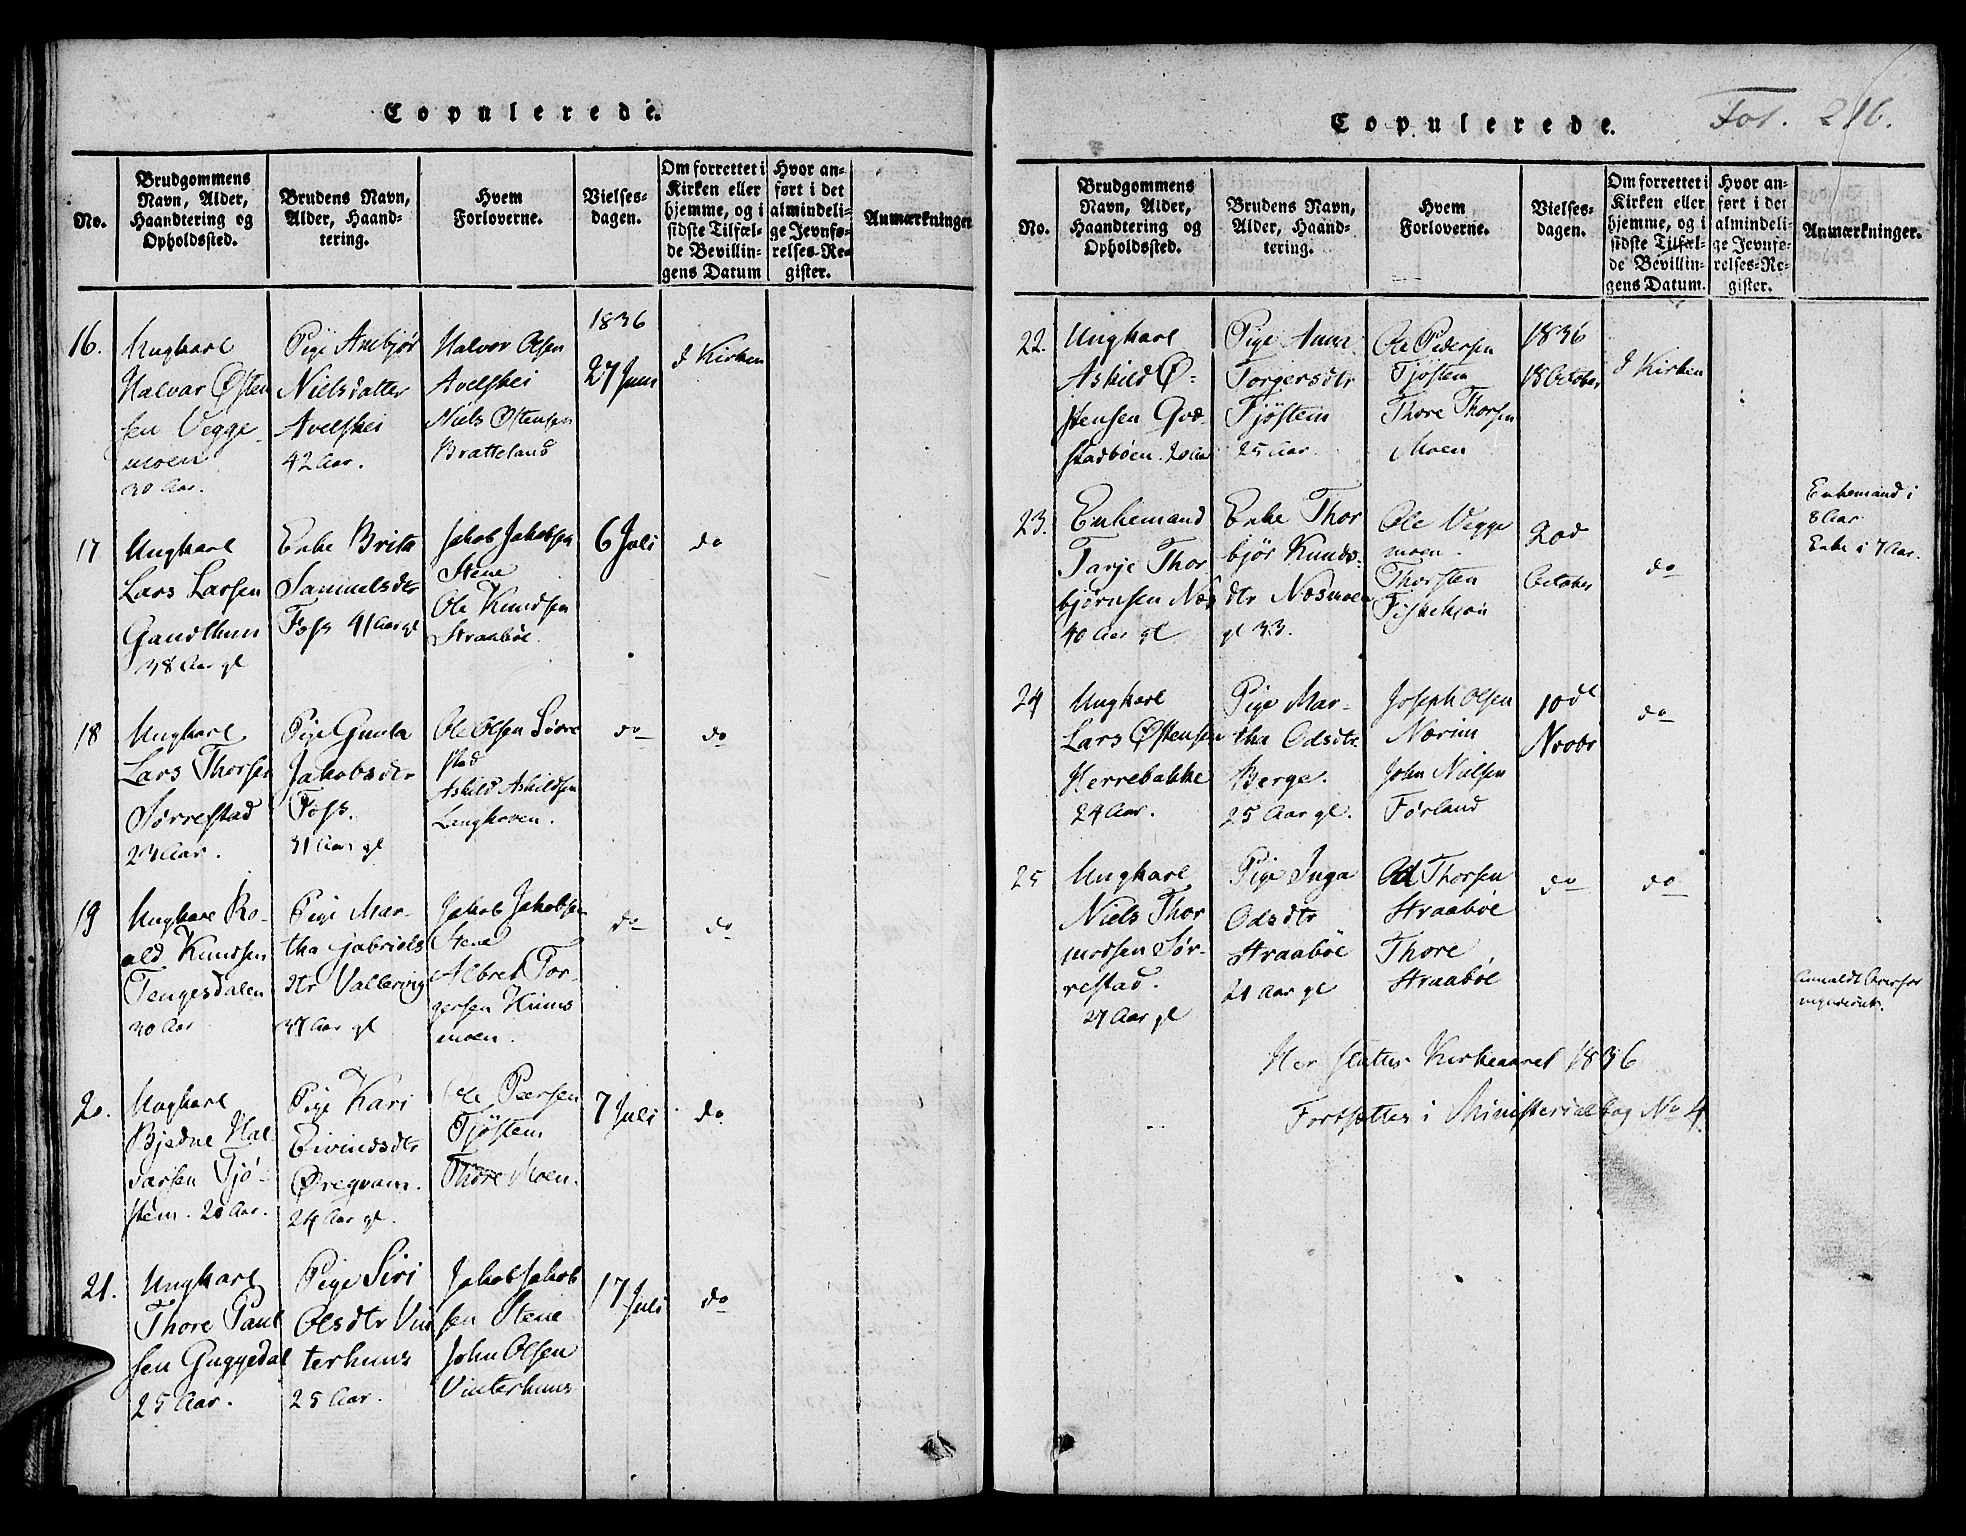 Copulerede.
No.
Brudgommens
Navn, Alder,
Haandtering og
Opholdssted.
Brudens Navn,
Alder, Haand-
tering.
Hvem
Forloverne.
Vielses-
dagen.
Om forrettet i
Kirken eller
hjemme, og i
sidste Tilfæl-
de Bevillin-
gens Datum
Hvor an-
ført i det
almindeli-
ge Jevnfø-
relses-Re-
gister.
Anmærkninger
16.
Ungkarl
Halvar Østen
sen Vegge-
moen
30 Aar.
Pige Anbjør
Nielsdatter
Avelshei
42 Aar.
Halvor Olsen
Avelshei
Niels Østensen
Bratteland
1836
27 Juni
I Kirken
17
Ungkarl
Lars Larsen
Gandthun
38 Aar gl
Enke Brita
Samuelsdtr
Foss 41 Aar gl
Jakob Jakobsen
Stene
Ole Knudsen
Straabøe.
6 Juli
do
18
Ungkarl
Lars Thorsen
Sørrestad
23 Aar.
Pige Gunla
Jakobsdtr
Foss.
31 Aar gl
Ole Olsen Sørre
stad
Askild Askildsen
Langhoven.
do
do
19
Ungkarl Ro-
ald Knudsen
Tengesdalen
30 Aar
Pige Mar-
tha Gabriels
dtr Vallervig
Aar gl
Jakob Jakobsen
Stene
Albret Tor-
gersen Hiims
moen.
do
do
20.
Ungkarl
Bjedne Hal-
varsen Tjø-
stem. 20 Aar.
Pige Kari
Eivindsdtr
Øregvam.
24 Aar gl.
Ole Pedersen
Tjøstem
Thore Moen.
7 Juli
do
21.
Ungkarl
Thore Paul
sen Guggedal
25 Aar.
Pige Siri
Olsdtr Vin
terhuns
25 Aar.
Jakob Jakob
sen Stene
John Olsen
Vinterhuns
17 Juli
do
Copulerede.
Fol. 216.
No.
Brudgommens
Navn, Alder,
Haandtering og
Opholdssted.
Brudens Navn,
Alder, Haand-
tering.
Hvem
Forloverne.
Vielses-
dagen.
Om forrettet i
Kirken eller
hjemme, og i
sidste Tilfæl-
de Bevillin-
gens Datum.
Hvor an-
ført i det
almindeli-
ge Jevnfø-
relses-Re-
gister.
Anmærkninger.
22.
Ungkarl
Askild Ø-
stensen Gvæ-
stadbøen. 20 Aar
Pige Anna
Torgersdtr
Tjøstem
25 Aar.
Ole Pedersen
Tjøstem
Thore Thorsen
Moen
1836
18 October
I Kirken
23.
Enkemand
Tarje Thor
bjørnsen Næs
40 Aar gl
Enke Thor
bjør Knuds-
dtr Næsmoen
gl 33.
Ole Vegge
moen.
Thorsten
Fiskekjøn
20d
October
do
Enkemand i
8 Aar
Enke i 7 Aar.
24
Ungkarl
Lars Østensen
Herrebakke
24 Aar.
Pige Mar-
tha Odsdtr.
Berge.
25 Aar gl.
Joseph Olsen
Nærim
John Nielsen
Førland
10de
Novbr
do
25
Ungkarl
Niels Thor
modsen Sør-
restad.
27 Aar gl
Pige Inga
Odsdtr
Straabøe
21 Aar gl
Od Thorsen
Straabøe
Thore
Straabøe
do
do
Her slutter Kirkeaaret 1836
Fortsættes i Ministerialbog No 4